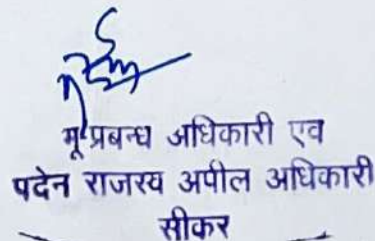 भू प्रबन्ध अधिकारी एव
पदेन राजस्य अपील अधिकारी
सीकर